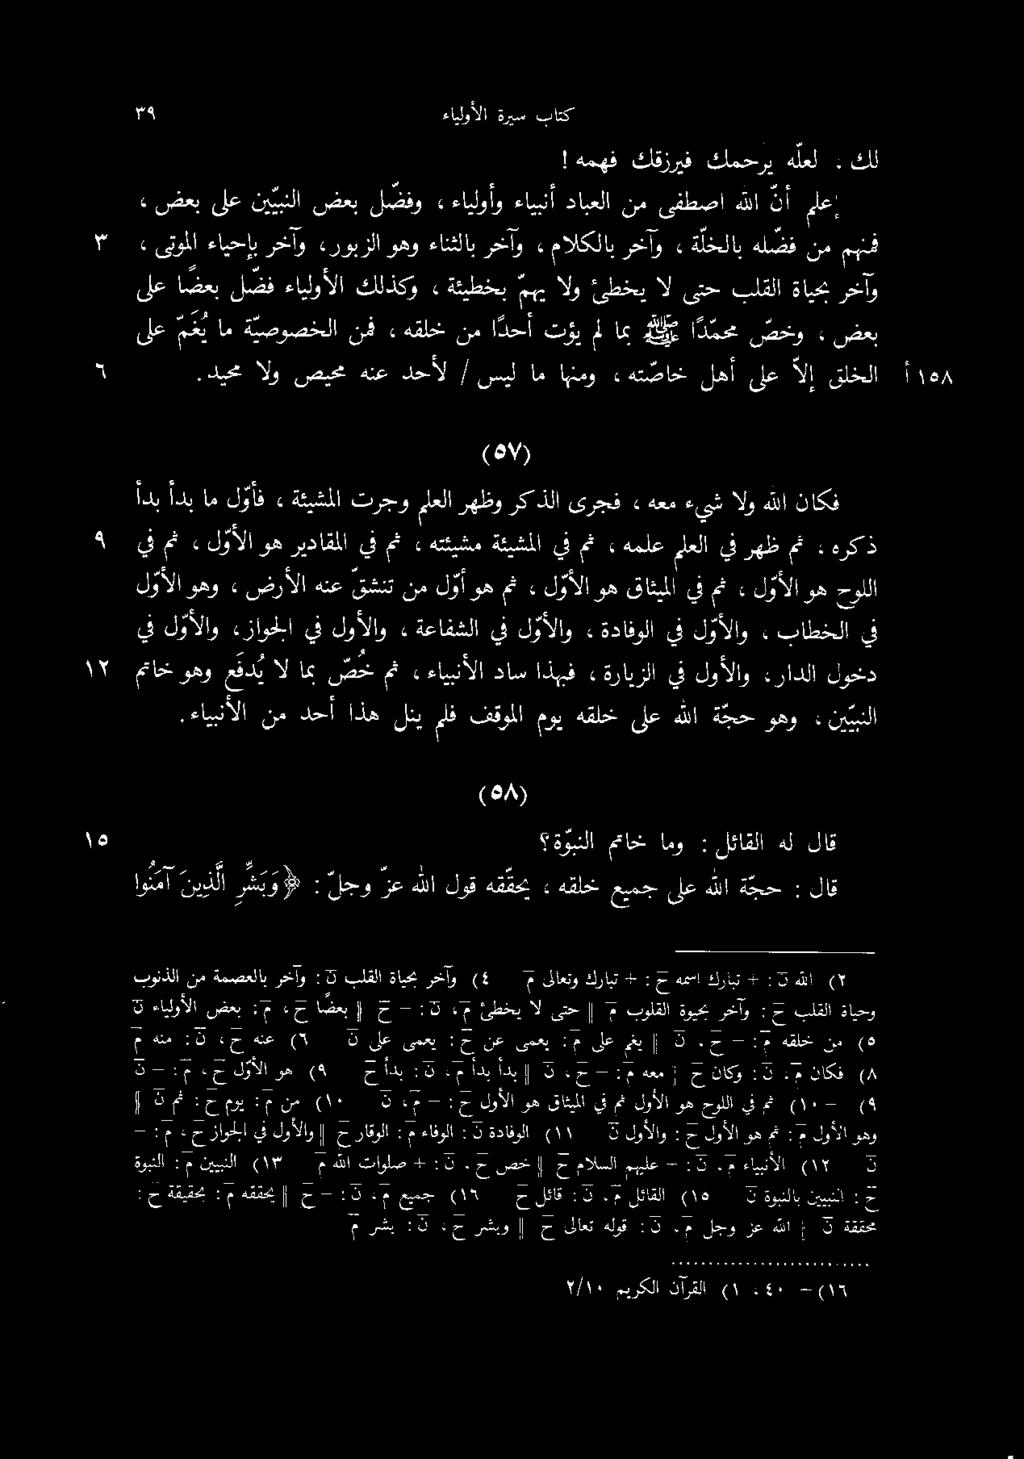 كتاب سيرة الأولياء ٣٩
لك، لعلّه يرحمك فيرزقك فهمه!
إعلم أنّ الله اصطفى من العباد أنبياء وأولياء، وفضّل بعض النبيّين على بعض،
فمنهم من فضّله بالخلّة، وآخر بالكلام، وآخر بالثناء وهو الزبور، وآخر بإحياء الموتى، ٣
وآخر بحياة القلب حتى لا يخطئ ولا يهمّ بخطيئة، وكذلك الأولياء فضّل بعضًا على
بعض، وخصّ محمّدًا ﷺ بما لم يؤت أحدًا من خلقه، فمن الخصوصيّة ما يُغَمّ على
١٥٨ أ الخلق إلاّ على أهل خاصّته، ومنها ما ليس / لأحد عنه محيص ولا محيد. ٦
(٥٧)
فكان الله ولا شيء معه، فجرى الذكر وظهر العلم وجرت المشيئة، فأوّل ما بدأ بدأ
ذكره، ثم ظهر في العلم علمه، ثم في المشيئة مشيئته، ثم في المقادير هو الأوّل، ثم في ٩
اللوح هو الأوّل، ثم في الميثاق هو الأوّل، ثم هو أوّل من تنشقّ عنه الأرض، وهو الأوّل
في الخطاب، والأوّل في الوفادة، والأوّل في الشفاعة، والأول في الجواز، والأوّل في
دخول الدار، والأول في الزيارة، فبهذا ساد الأنبياء، ثم خُصّ بما لا يُدفَع وهو خاتم ١٢
النبيّين، وهو حجّة الله على خلقه يوم الموقف فلم ينل هذا أحد من الأنبياء.
(٥٨)
قال له القائل: وما خاتم النبوّة؟ ١٥
قال: حجّة الله على جميع خلقه، يحقّقه قول الله عزّ وجلّ: ﴿وَبَشِّرِ الَّذِينَ آمَنُوا
٢) الله ن: + تبارك اسمه ح: + تبارك وتعالى م ٤) وآخر بحياة القلب ن: وآخر بالعصمة من الذنوب
وحياة القلب ح: وآخر بحيوة القلوب م ‖ حتى لا يخطئ م، ن: – ح ‖ بعضًا ح، م: بعض الأولياء ن
٥) من خلقه م: – ح، ن ‖ يغم على م: يعمى عن ح: يعمى على ن ٦) عنه ح، ن: منه م
٨) فكان م، ن: وكان ح ‖ معه م: – ح، ن ‖ بدأ بدأ م، ن: بدأ ح ٩) هو الأوّل ح، م: – ن
٩) – ١٠) ثم في اللوح هو الأول ثم في الميثاق هو الأول ح: – م، ن ١٠) من م: يوم ح: ثم ن ‖
وهو الأول م: ثم هو الأول ح: والأول ن ١١) الوفادة ن: الوفاء م: الوقار ح ‖ والأول في الجواز ح، م: –
ن ١٢) الأنبياء م، ن: – عليهم السلام ح ‖ خص ح، ن: + صلوات الله م ١٣) النبيين م: النبوة
ح: النبيين بالنبوة ن ١٥) القائل م، ن: قائل ح ١٦) جميع م، ن: – ح ‖ يحققه م: بحقيقة ح:
محققة ن ‖ الله عز وجل م، ن: قوله تعالى ح ‖ وبشر ح، ن: بشر م
١٦) – ٤٠، ١) القرآن الكريم ٢/١٠